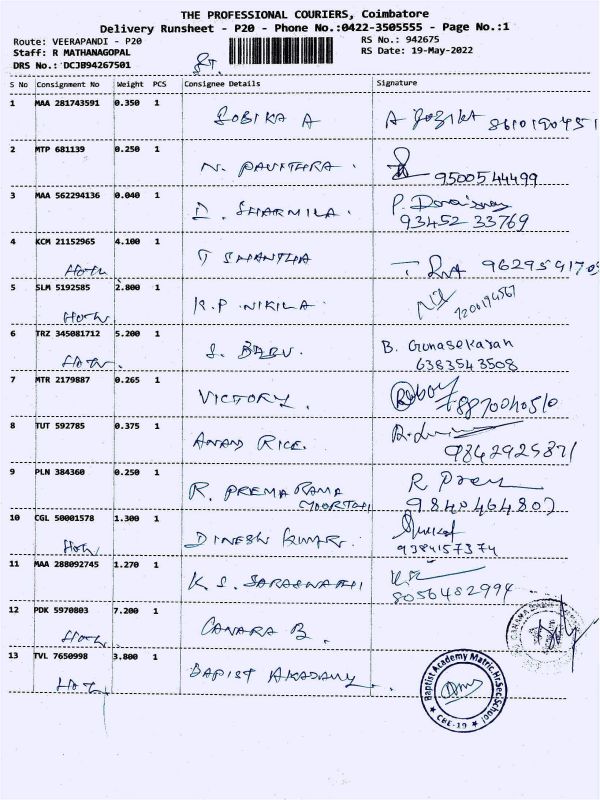 THE PROFESSIONAL COURIERS, Coimbatore
Delivery Runsheet - P20 - Phone No.:0422-3505555 - Page No.:1
Route: VEERAPANDI - P20
RS No.: 942675
Staff: R MATHANAGOPAL
RS Date: 19-May-2022
DRS No.: DCJB94267501
S No Consignment No Weight PCS Consignee Details Signature
1 MAA 281743591 0.350 1 GOBIKA A A
2 MTP 681139 0.250 1 N. PAVITHRA. 9500544499
3 MAA 562294136 0.040 1 SHARMILA. P.
93452 33769
4 KCM 21152965 4.100 1 T SHANTHA
5 SLM 5192585 2.800 1 K.P NIKILA
6 TRZ 345081712 5.200 1 S. BABU. B. Gunasekaran
6383543508
7 MTR 2179887 0.265 1 VICTORY.
8 TUT 592785 0.375 1 ANAND RICE.
9842925871
9 PLN 384360 0.250 1 R. PREMA RAMA MOORTHI R
9840464807
10 CGL 50001578 1.300 1 DINESH KUMAR.
9384157374
11 MAA 288092745 1.270 1 K. S. SARASWATHI
8056482994
12 PDK 5970803 7.200 1 CANARA B.
13 TVL 7650998 3.800 1 BAPIST AKADAMY.
Baptist Academy Matric.Hr.Sec.School
★ CBE-19 ★